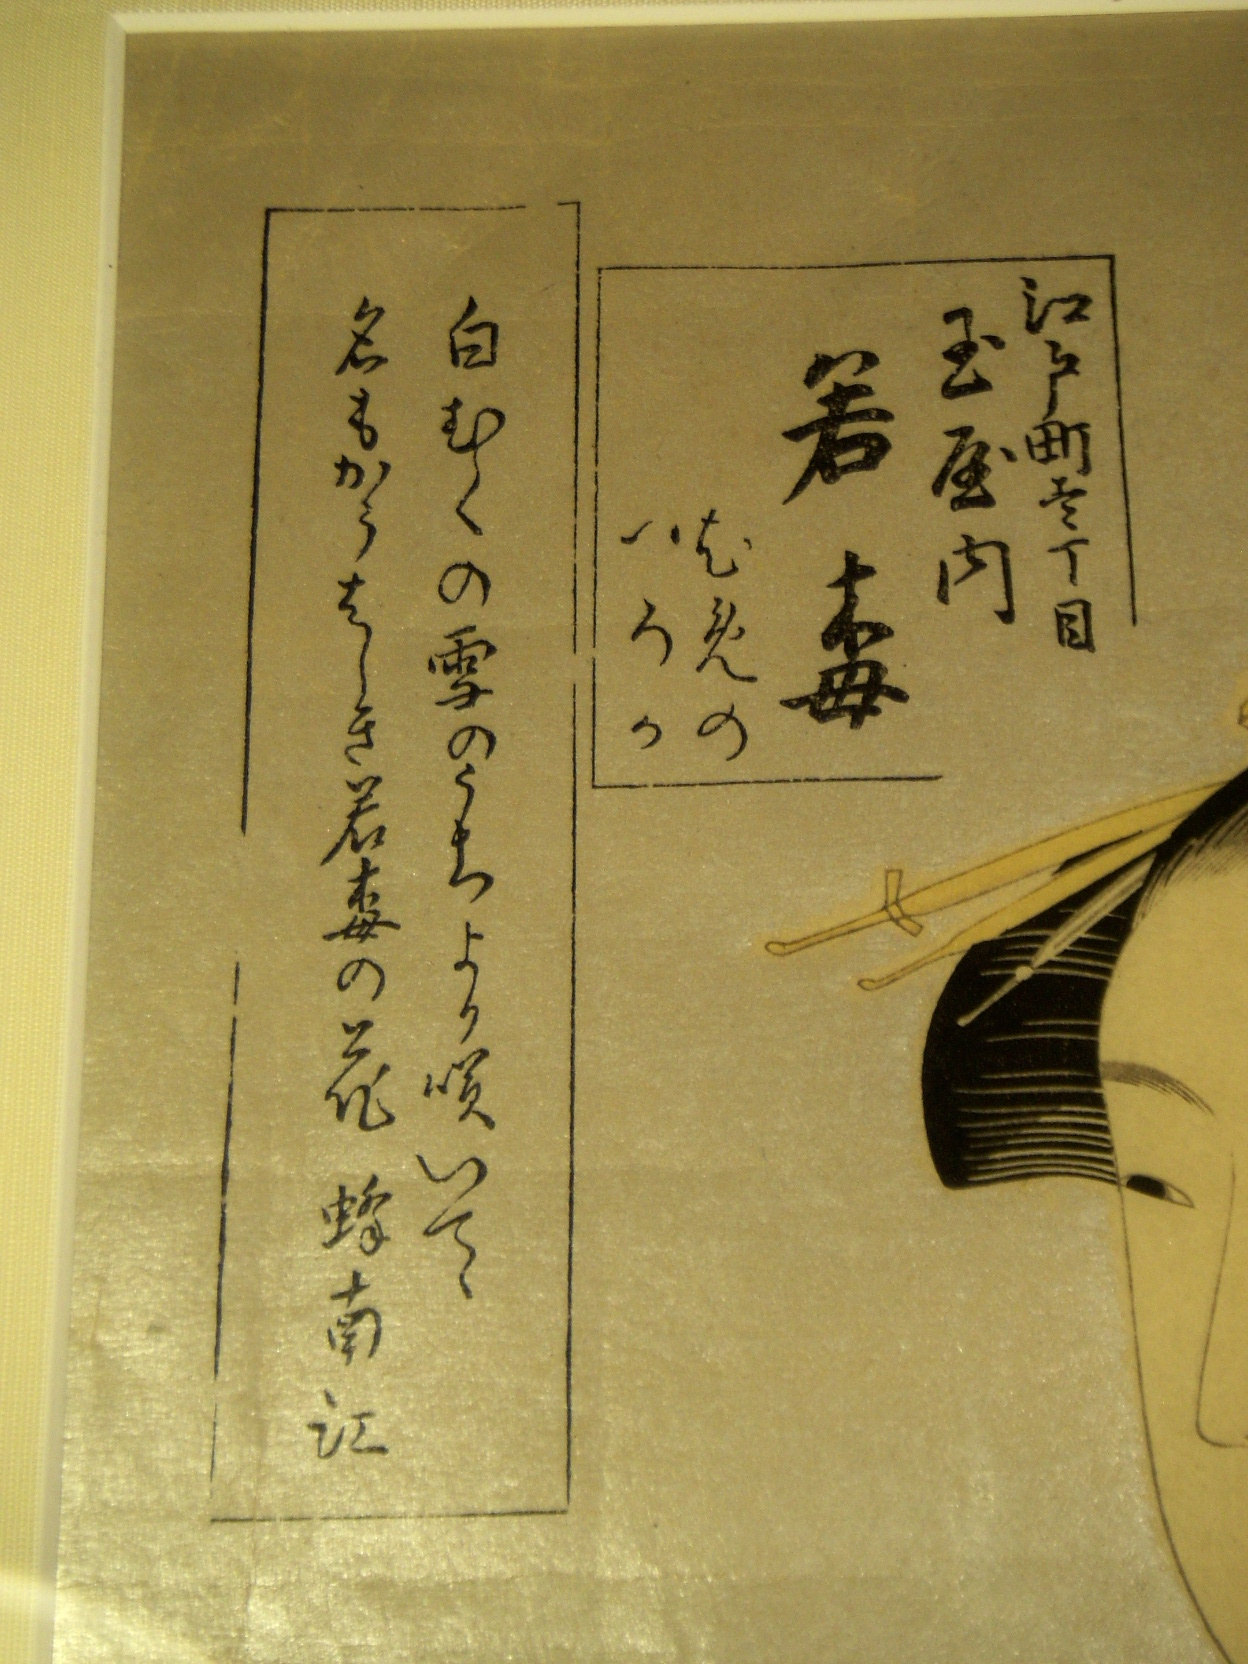 江戸町壱丁目
玉屋内
若梅
むめの
いろか
白むくの雪のうちより咲いてゝ
名もかうはしき若梅の花 蜂南江